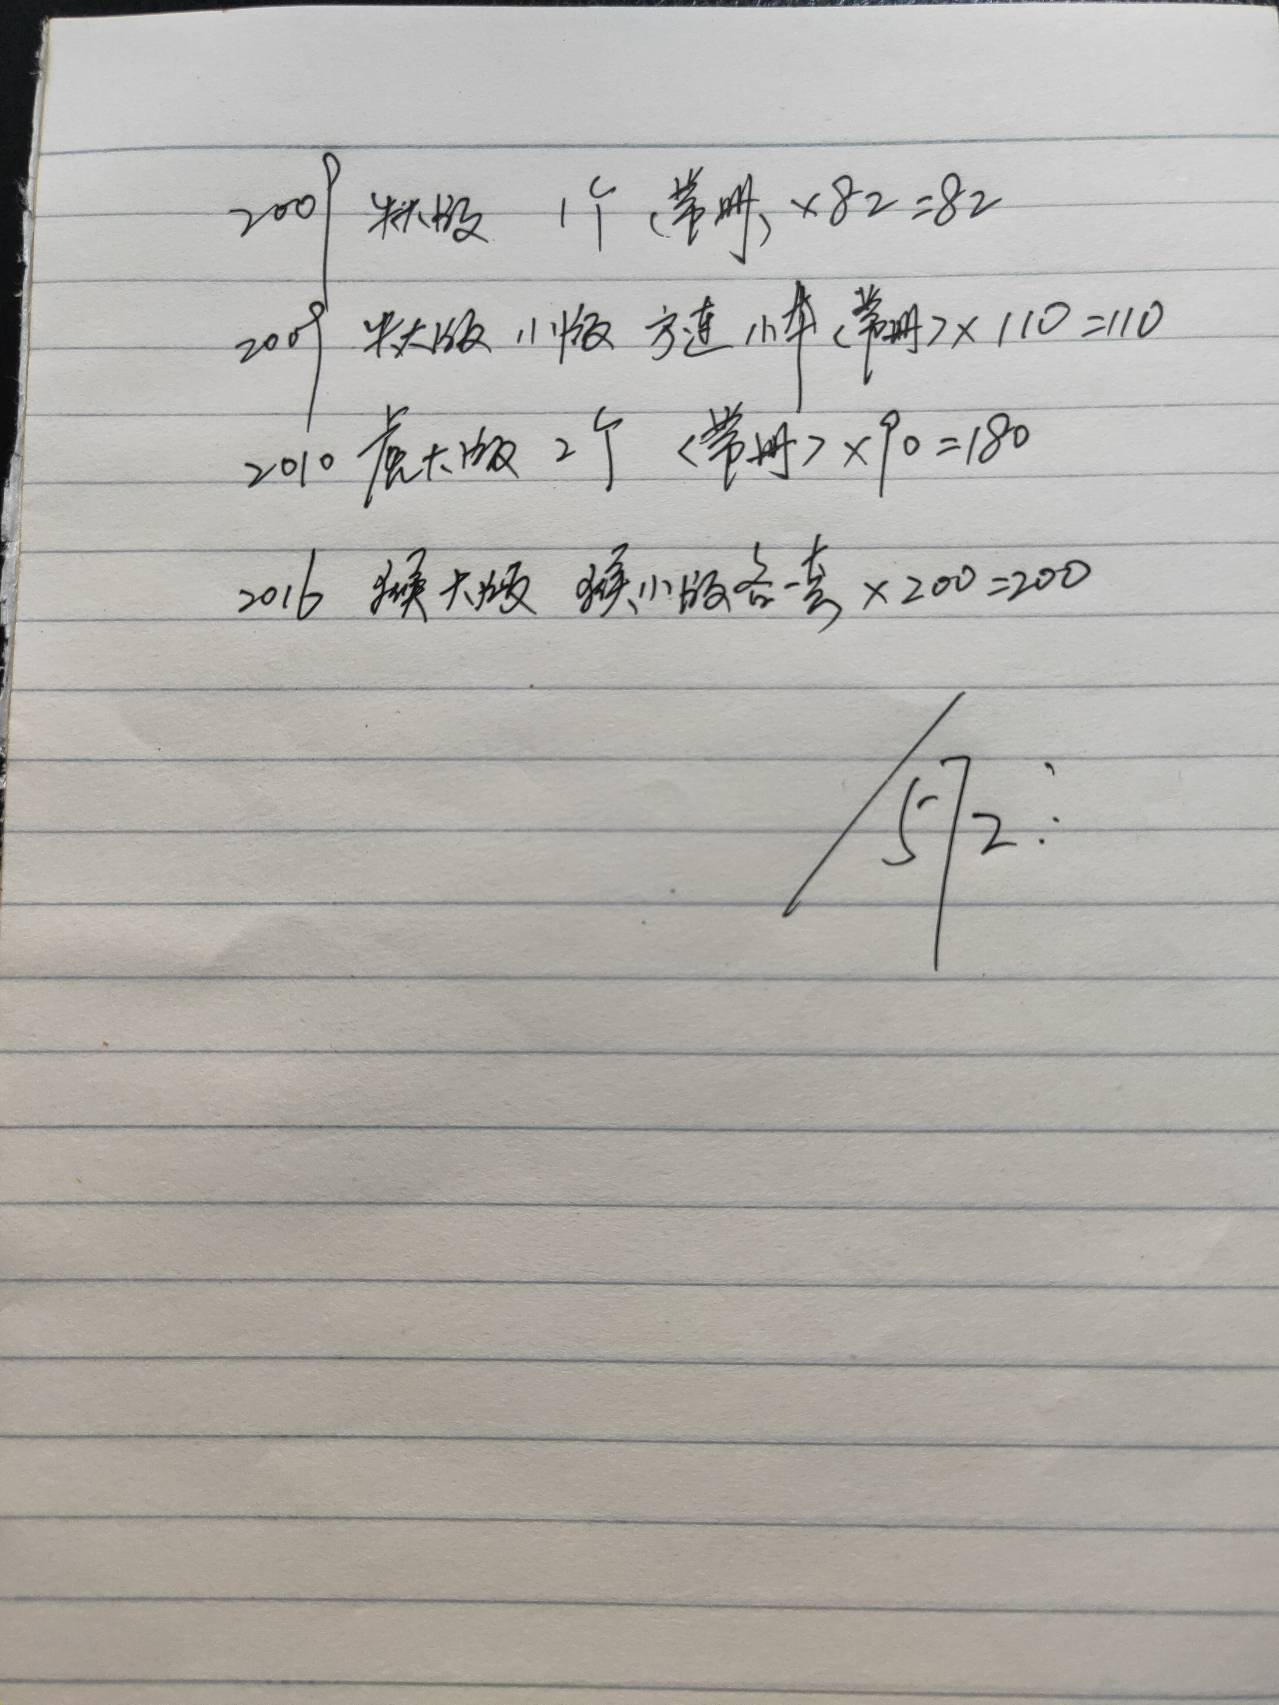 2009 牛大版 1个 (带册) ×82=82
2009 牛大版 小版 方连 小本 (带册) ×110=110
2010 虎大版 2个 (带册) ×90=180
2016 猴大版 猴小版各一套 ×200=200
572